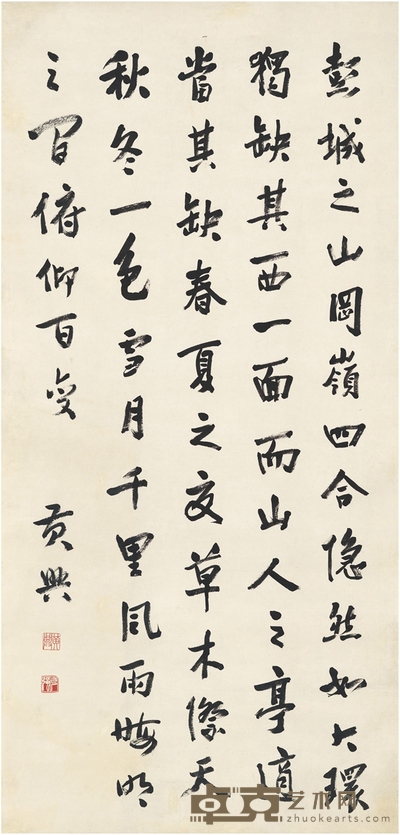 彭城之山岡嶺四合隱然如大環
獨缺其西一面而山人之亭適
當其缺春夏之交草木際天
秋冬一色雪月千里風雨晦明
之間俯仰百變
黄興
卓克艺术网
zhuokearts.com